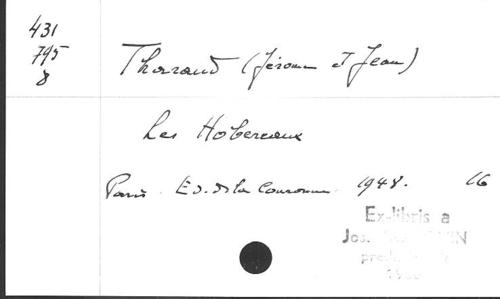 431
795
8
Tharaud (Jérôme et Jean)
Les Hobereaux
Paris. Ed. de la Couronne. 1948. 16
Ex-libris a
Jos.